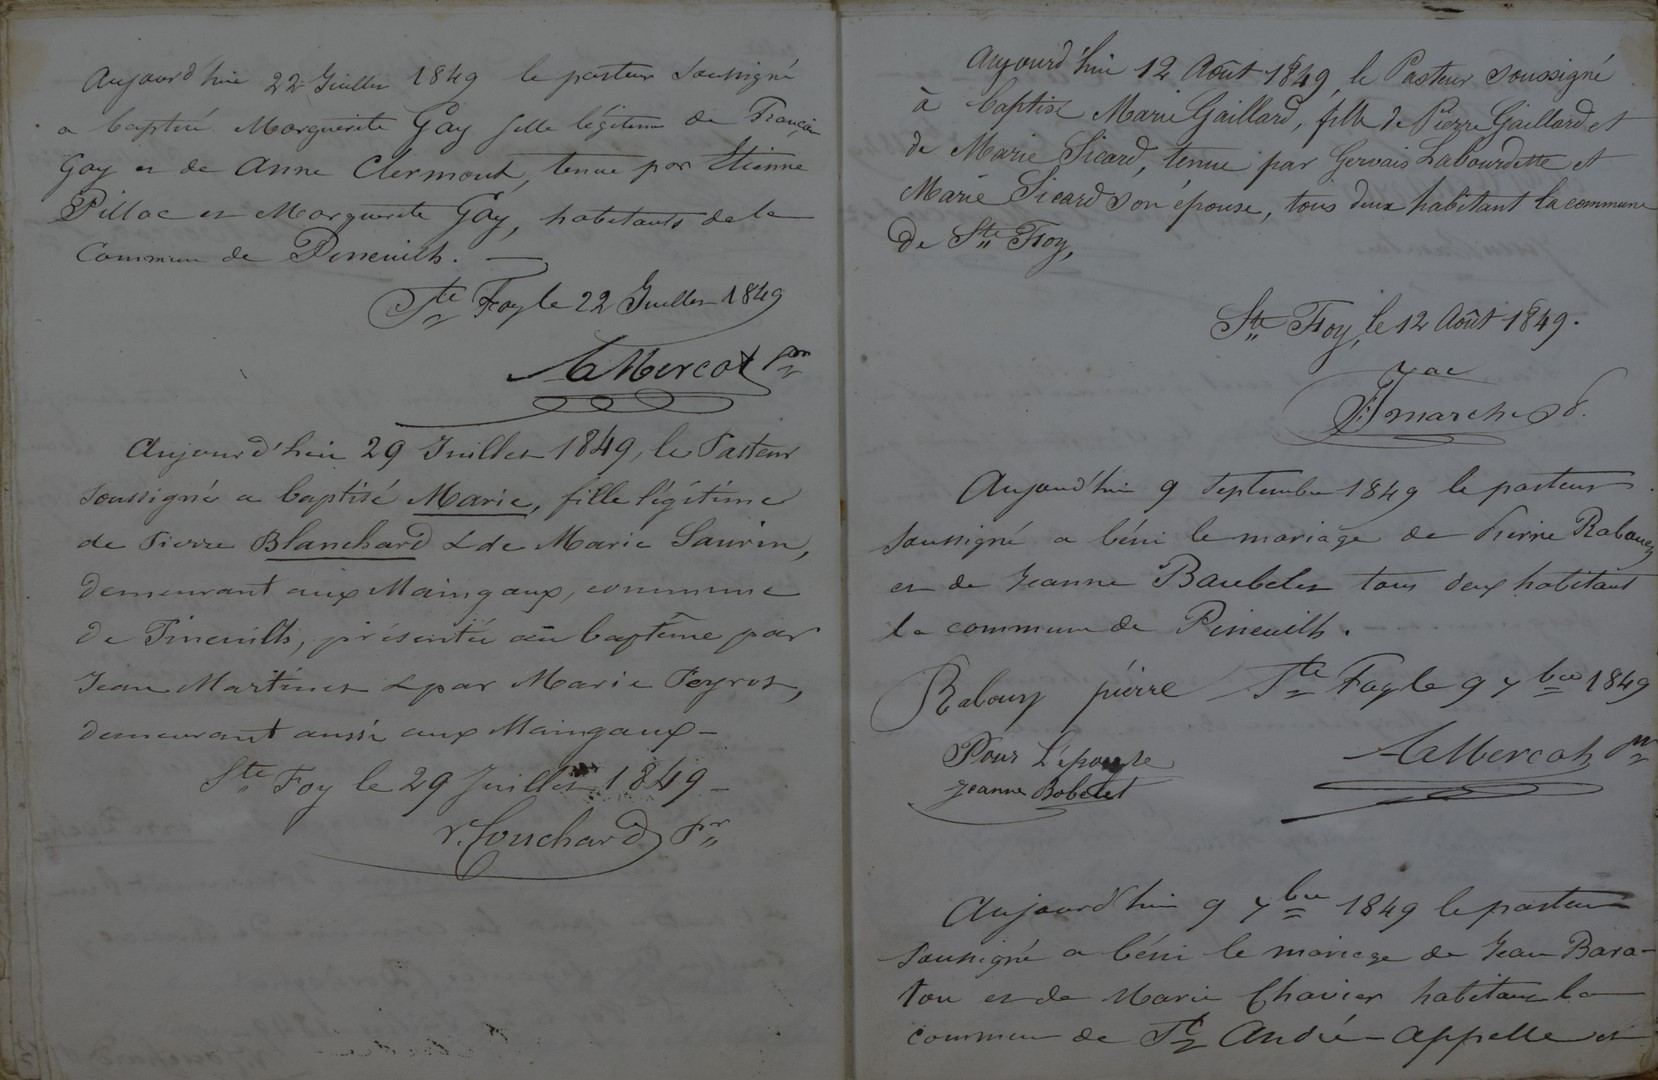 Aujourd'hui 22 Juillet 1849 le pasteur soussigné
a baptisé Marguerite Gay fille légitime de François
Gay et de Anne Clermont, tenue par Etienne
Pillac et Marguerite Gay, habitants de la
Commune de Pineuilh.
Ste Foy le 22 Juillet 1849
A Mercat Pr
Aujourd'hui 29 Juillet 1849, le Pasteur
soussigné a baptisé Marie, fille légitime
de Pierre Blanchard & de Marie Saurin,
demeurant aux Maingaux, commune
de Pineuilh, présentée au baptême par
Jean Martinet & par Marie Peyrot,
demeurant aussi aux Maingaux
Ste Foy le 29 Juillet 1849
Pr
Aujourd'hui 12 Août 1849, le Pasteur soussigné
à baptisé Marie Gaillard, fille de Pierre Gaillard et
de Marie Sicard, tenue par Gervais Labourdette et
Marie Sicard son épouse, tous deux habitant la commune
de Ste Foy,
Ste Foy, le 12 Août 1849.
Aujourd'hui 9 Septembre 1849 le pasteur
soussigné a béni le mariage de Pierre
et de Jeanne Baubelet tous deux habitant
la commune de Pineuilh.
Rabouy pierre Ste Foy le 9 7bre 1849
Pour L'épouse A Mercat Pr
Jeanne Bobelet
Aujourd'hui 9 7bre 1849 le pasteur
soussigné a béni le mariage de Jean Bara-
ton et de Marie Chavier habitant la
commune de St André-Appelle et